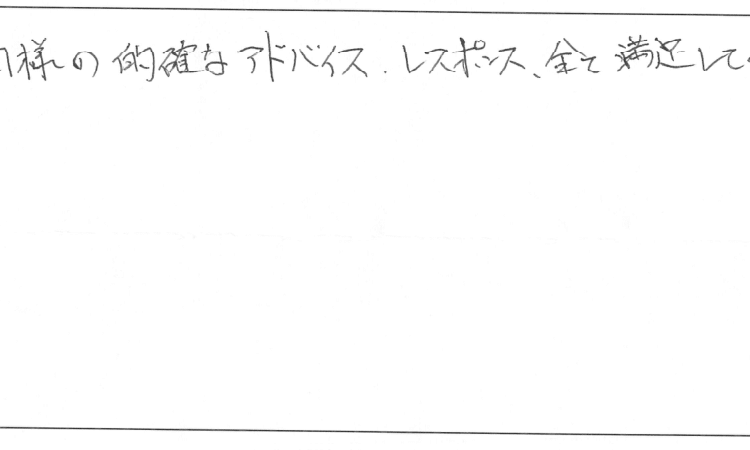 様の的確なアドバイス、レスポンス、全て満足して